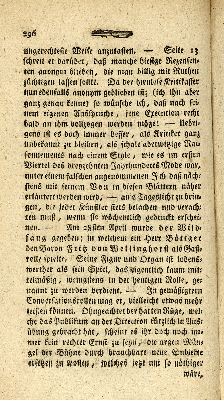 296
ungerechteste Weise anzutasten. — Seite 13
schreit er darüber, daß manche hiesige Rezensen-
ten anonym blieben, die man billig mit Ruthen
züchtigen lassen sollte. Da der hirnlose Kritikaster
nun ebenfalls anonym geblieben ist; (ich ihn aber
ganz genau kenne) so wünsche ich, daß nach sei-
nem eigenen Ausspruche, jene Execution recht
bald an ihm vollzogen werden möge. — Uebri-
gens ist es doch immer besser, als Kritiker ganz
unbekannt zu bleiben, als schale aberwitzige Rai-
sonnements nach einem Style, wie es im ersten
Viertel des vergangenen Jahrhunderts Mode war,
unter einem falschen angenommenen Ich daß nächs-
tens mit seinem Von in diesen Blättern näher
erläutert werden soll) — — ans Tageslicht zu brin-
gen, die jeder Künstler stets belachen und verach-
ten muß, wenn sie wöchentlich gedruckt erschie-
nen. — Am 25sten April wurde der Wild-
fang gegeben; in welchem ein Herr Böttger
den Baron Fritz von Wellinghorst als Gast-
rolle spielte. Seine Figur und Organ ist lobens-
werther als sein Spiel, das eigentlich kaum mit-
telmäßig, wenigstens in der heutigen Rolle, ge-
nannt zu werden verdient. — In gemäßigtern
Conversationsrollen mag er, vielleicht etwas mehr
leisten können. Ohngeachtet der harten Rüge, wel-
che das Publikum an der Direction kürzlich in Aus-
übung gebracht hat, scheint es ihr doch noch im-
mer kein rechter Ernst zu seyn, die argen Män-
gel der Bühne durch brauchbare neue Subjekte
ersetzen zu wollen, welches jetzt um so nöthiger
wäre,